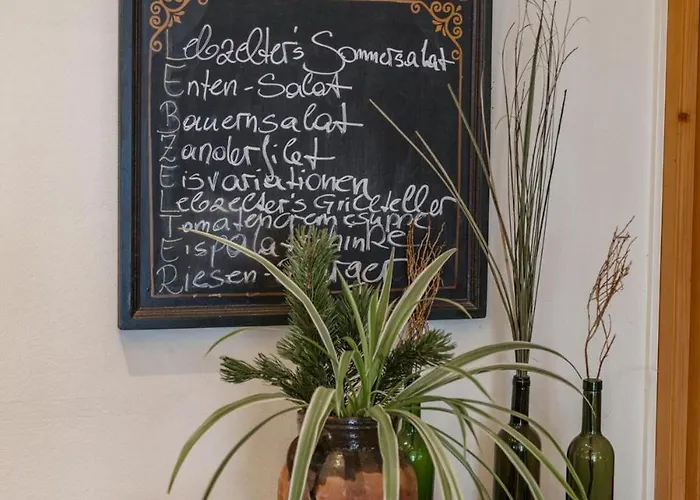 Lebzelter's Sommersalat
Enten-Salat
Bauernsalat
Zanderfilet
Eisvariationen
Lebzelter's Grillteller
Tomatencremesuppe
Riesen-